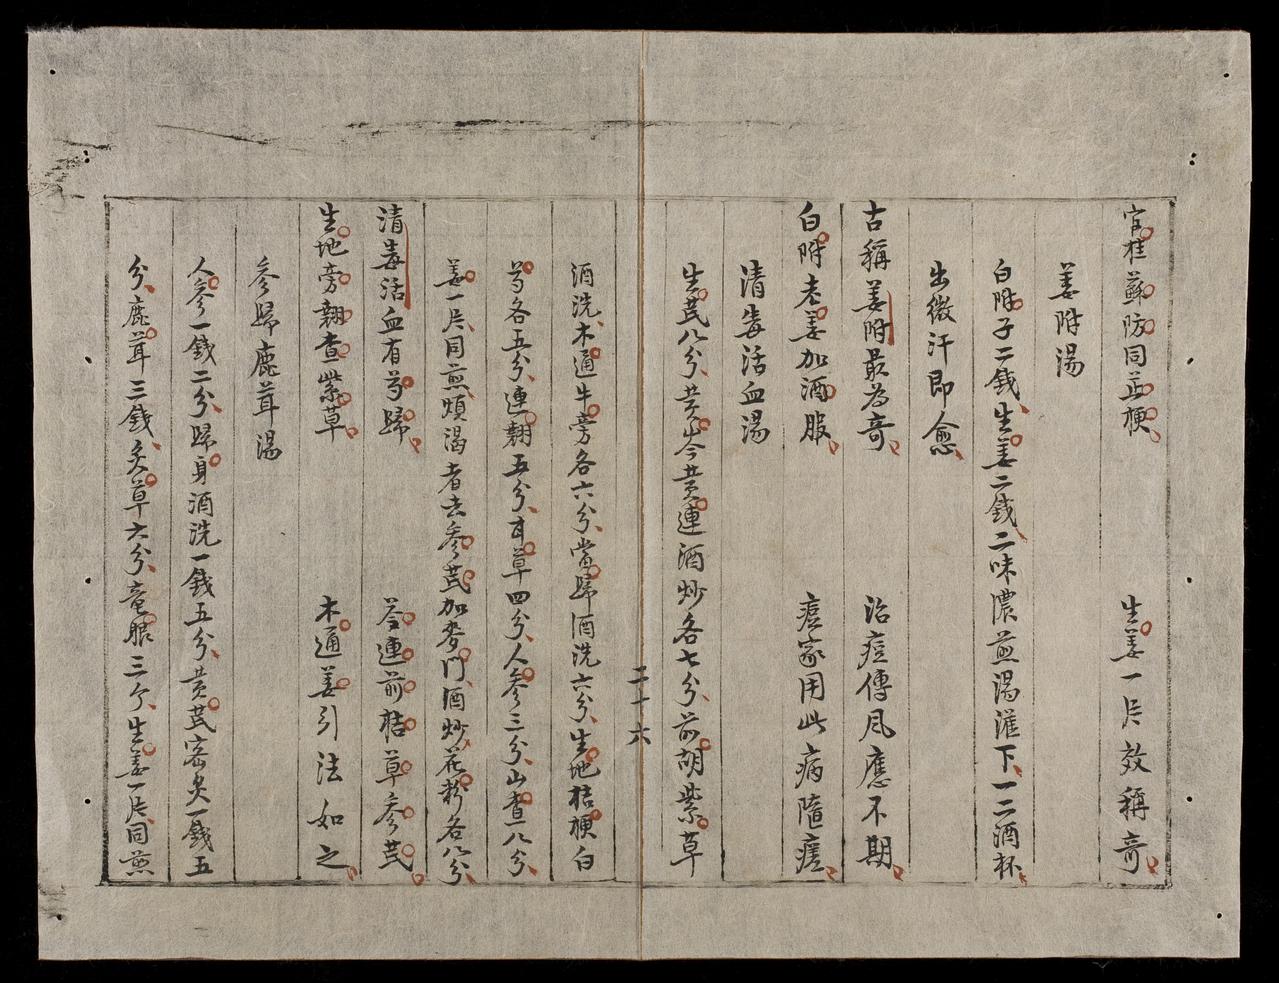 官桂蘇防同荳梗　生姜一片效稱奇
姜附湯
白附子二錢生姜二錢二味濃煎湯灌下一二酒杯
出微汗即愈
古稱姜附最為奇　治痘傳風應不期
白附老姜加酒服　痘家用此病隨痊
清毒活血湯
生芪八分黄芩黄連酒炒各七分前胡紫草
二十六
酒洗木通牛旁各六分當歸酒洗六分生地桔梗白
芍各五分連翹五分甘草四分人參三分山查八分
姜一片同煎煩渴者去參芪加麥門酒炒花粉各八分
清毒活血有芍歸　芩連前桔草參芪
生地旁翹查紫草　木通姜引法如之
參歸鹿茸湯
人參一錢二分歸身酒洗一錢五分黄芪密炙一錢五
分鹿茸三錢炙草六分竜眼三个生姜一片同煎